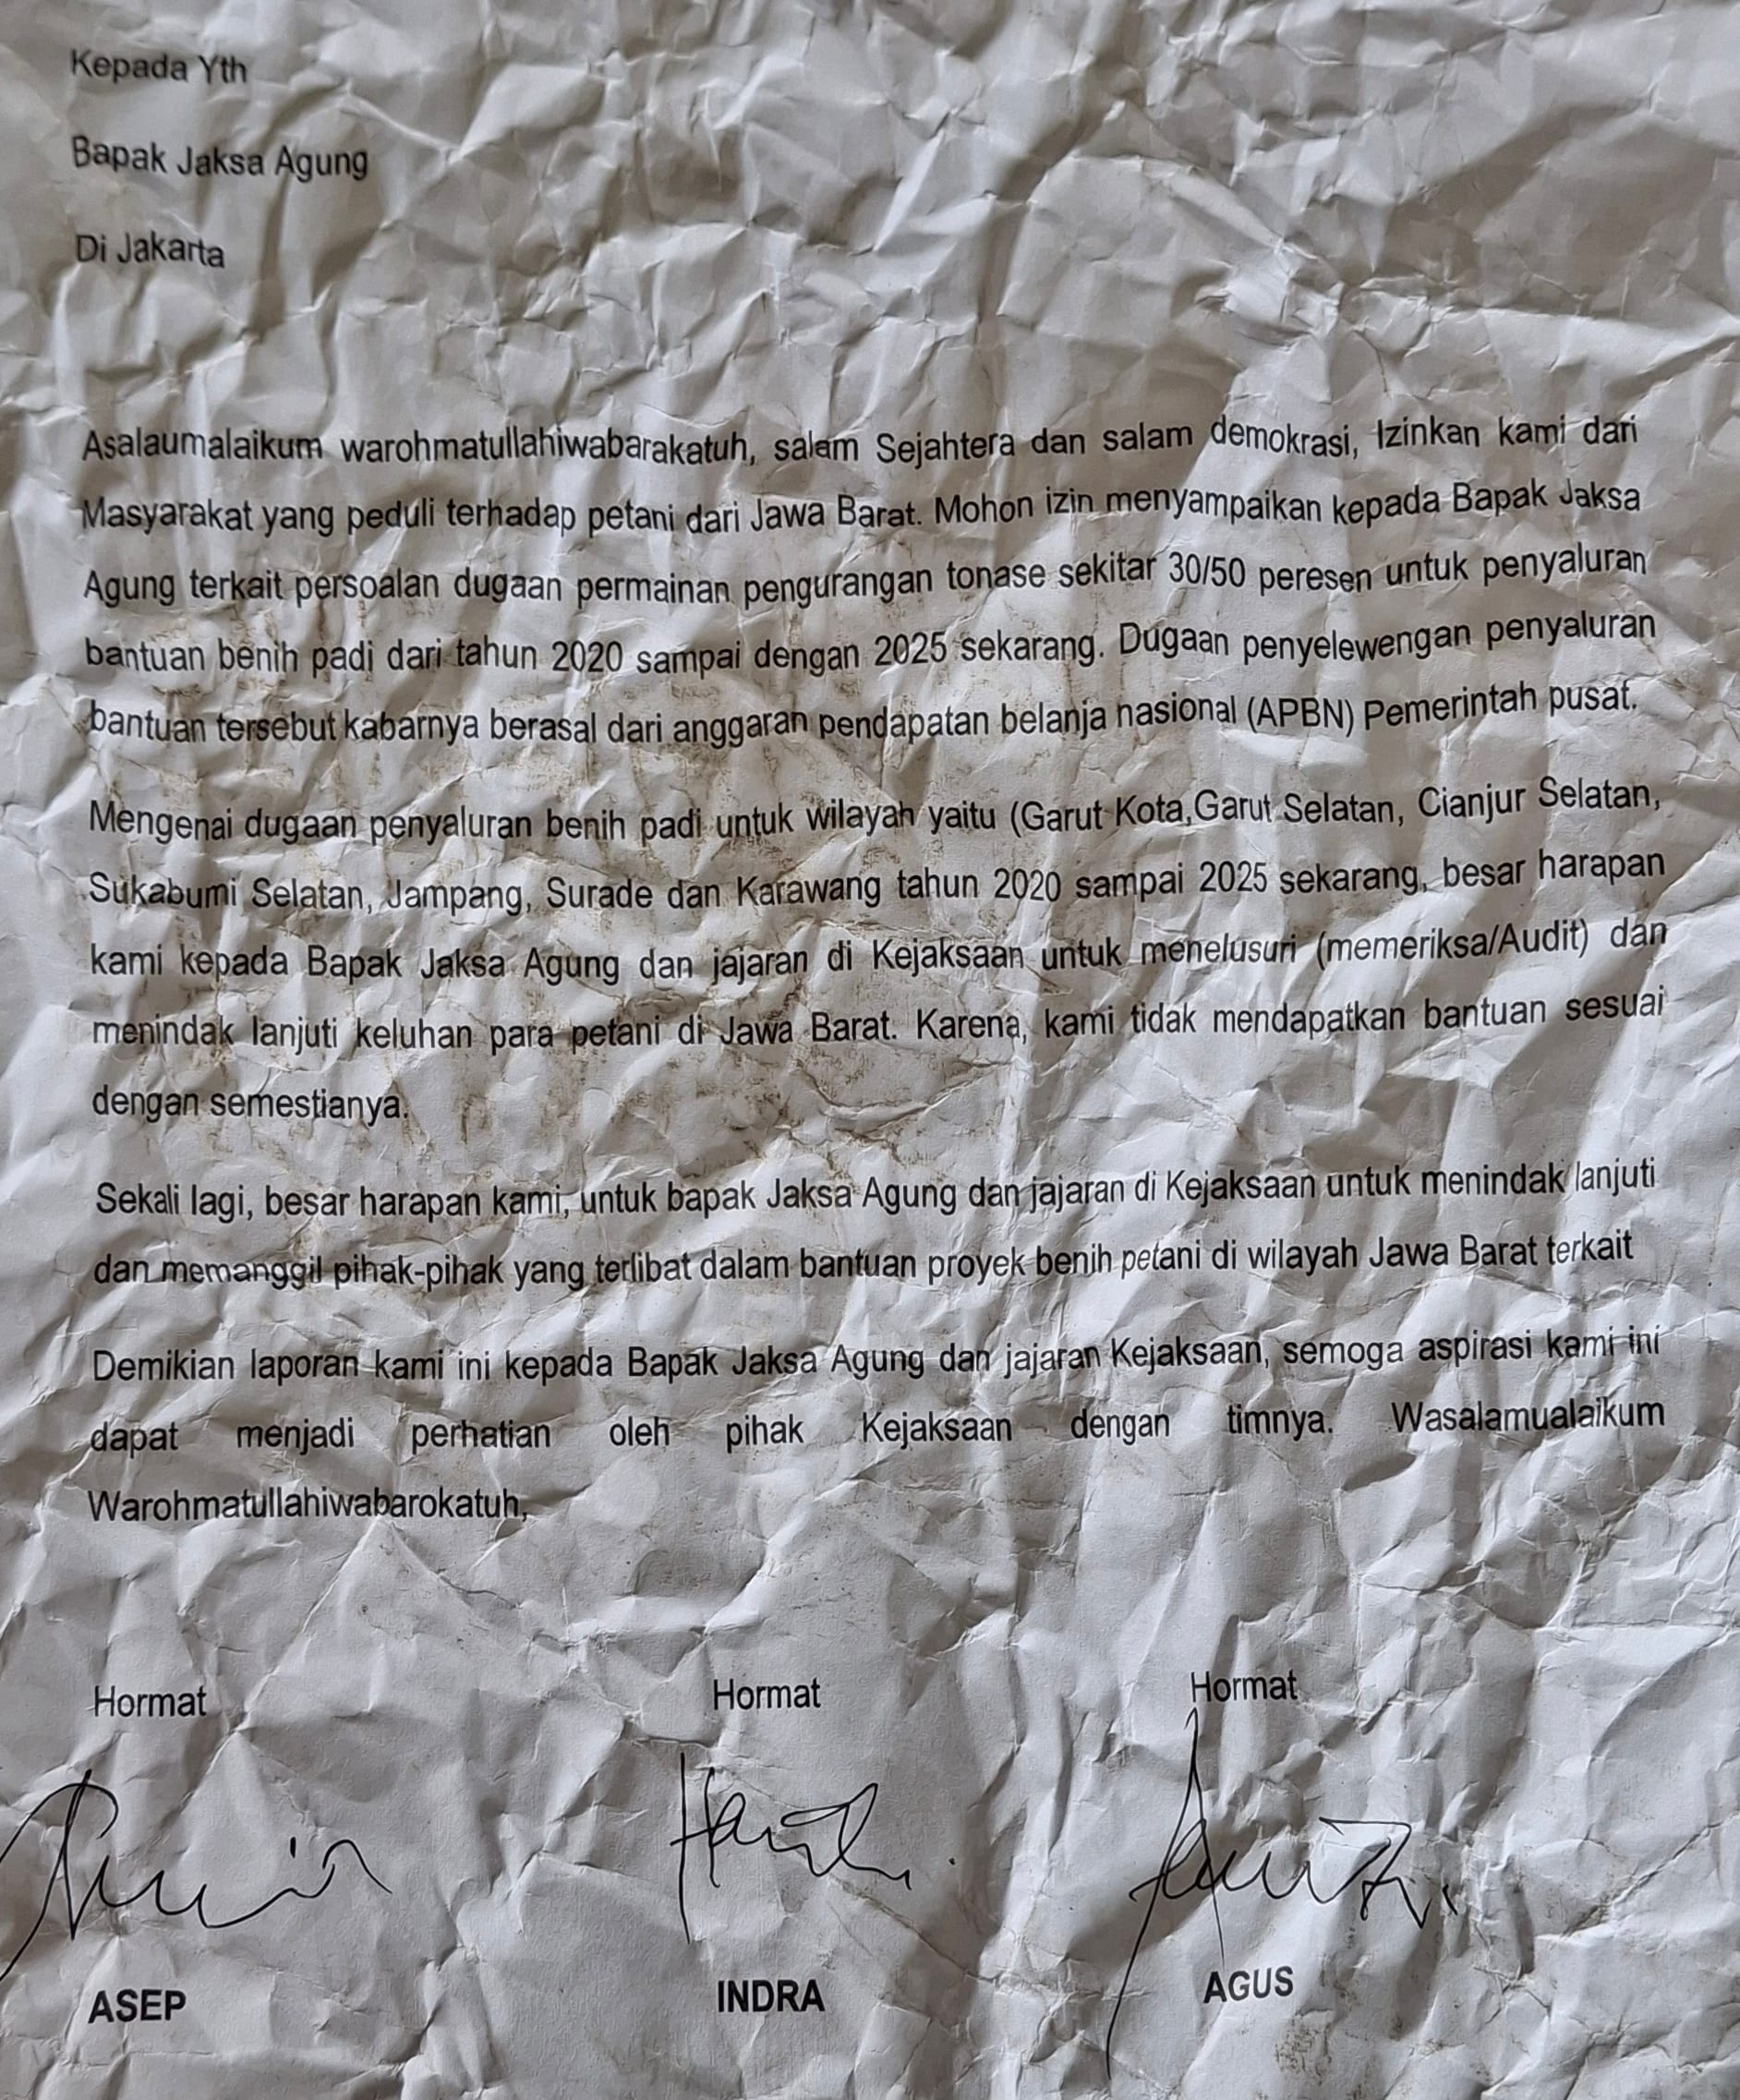 Kepada Yth
Bapak Jaksa Agung
Di Jakarta
Asalaumalaikum warohmatullahiwabarakatuh, salam Sejahtera dan salam demokrasi, Izinkan kami dari
Masyarakat yang peduli terhadap petani dari Jawa Barat. Mohon izin menyampaikan kepada Bapak Jaksa
Agung terkait persoalan dugaan permainan pengurangan tonase sekitar 30/50 peresen untuk penyaluran
bantuan benih padi dari tahun 2020 sampai dengan 2025 sekarang. Dugaan penyelewengan penyaluran
bantuan tersebut kabarnya berasal dari anggaran pendapatan belanja nasional (APBN) Pemerintah pusat.
Mengenai dugaan penyaluran benih padi untuk wilayah yaitu (Garut Kota,Garut Selatan, Cianjur Selatan,
Sukabumi Selatan, Jampang, Surade dan Karawang tahun 2020 sampai 2025 sekarang, besar harapan
kami kepada Bapak Jaksa Agung dan jajaran di Kejaksaan untuk menelusuri (memeriksa/Audit) dan
menindak lanjuti keluhan para petani di Jawa Barat. Karena, kami tidak mendapatkan bantuan sesuai
dengan semestianya.
Sekali lagi, besar harapan kami, untuk bapak Jaksa Agung dan jajaran di Kejaksaan untuk menindak lanjuti
dan memanggil pihak-pihak yang terlibat dalam bantuan proyek benih petani di wilayah Jawa Barat terkait
Demikian laporan kami ini kepada Bapak Jaksa Agung dan jajaran Kejaksaan, semoga aspirasi kami ini
dapat menjadi perhatian oleh pihak Kejaksaan dengan timnya. Wasalamualaikum
Warohmatullahiwabarokatuh,
Hormat Hormat Hormat
ASEP INDRA AGUS